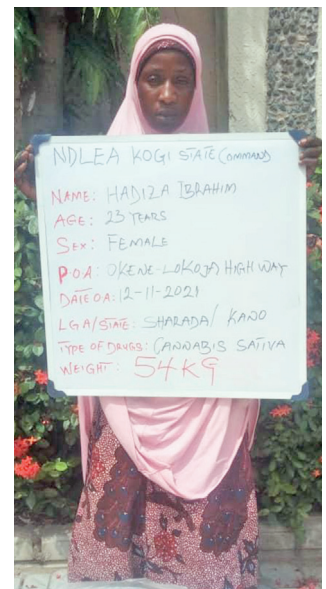 NDLEA KOGI STATE COMMAND
NAME: HADIZA IBRAHIM
AGE: 23 YEARS
SEX: FEMALE
P.O.A: OKENE-LOKOJA HIGH WAY
DATE OA: 12-11-2021
LGA/STATE: SHARADA/ KANO
TYPE OF DRUGS: CANNABIS SATIVA
WEIGHT: 54KG